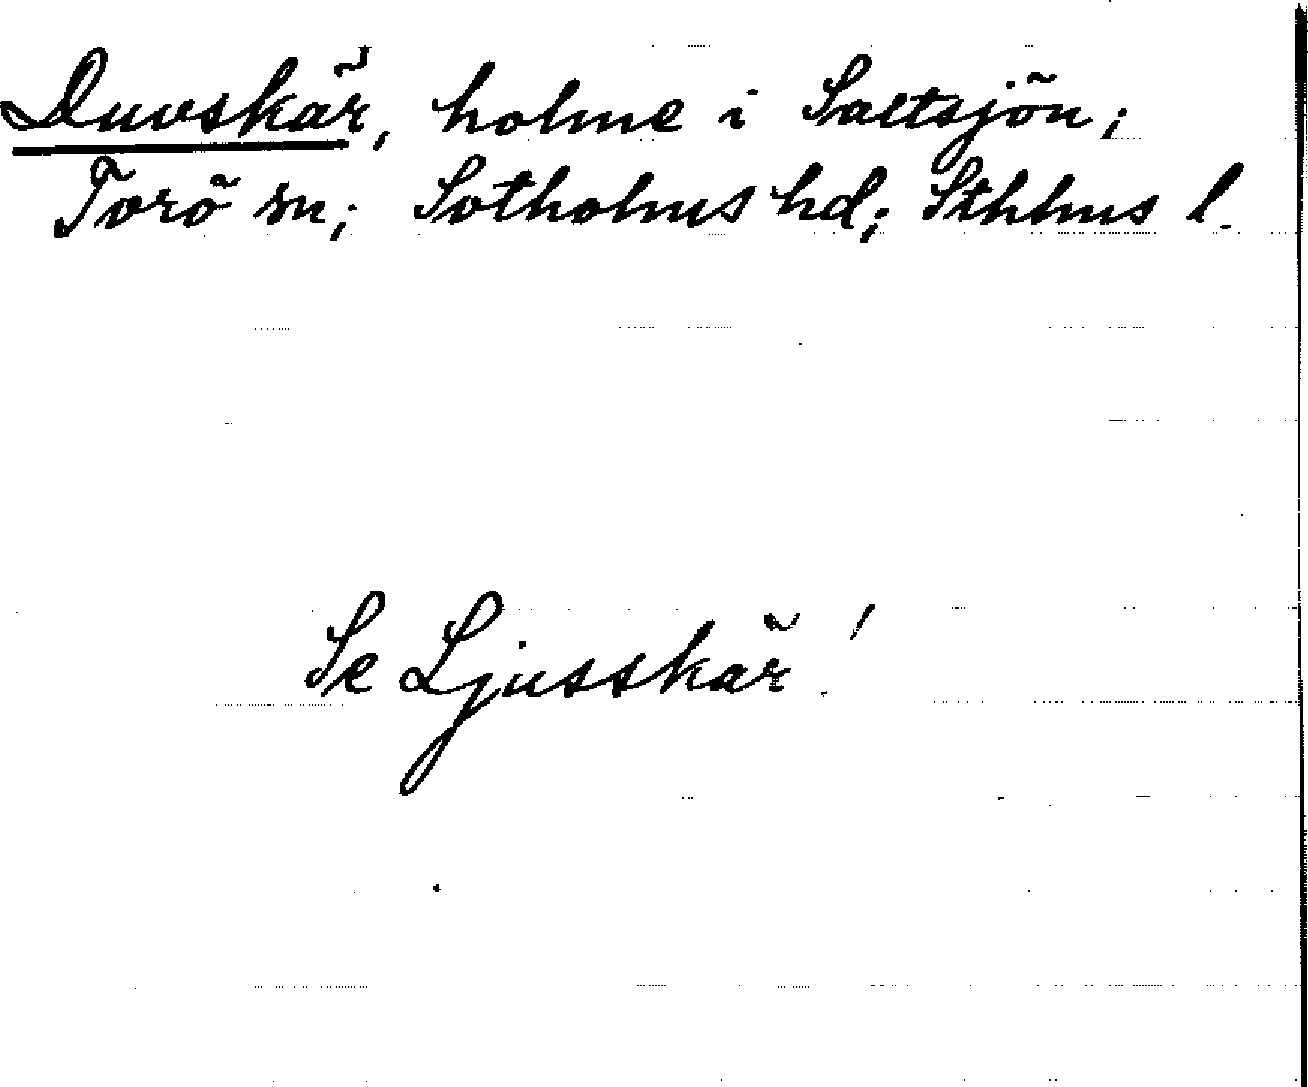 Duvskär, holme i Saltsjön;
Torö sn; Sotholms hd; Sthlms l.
Se Ljusskär!